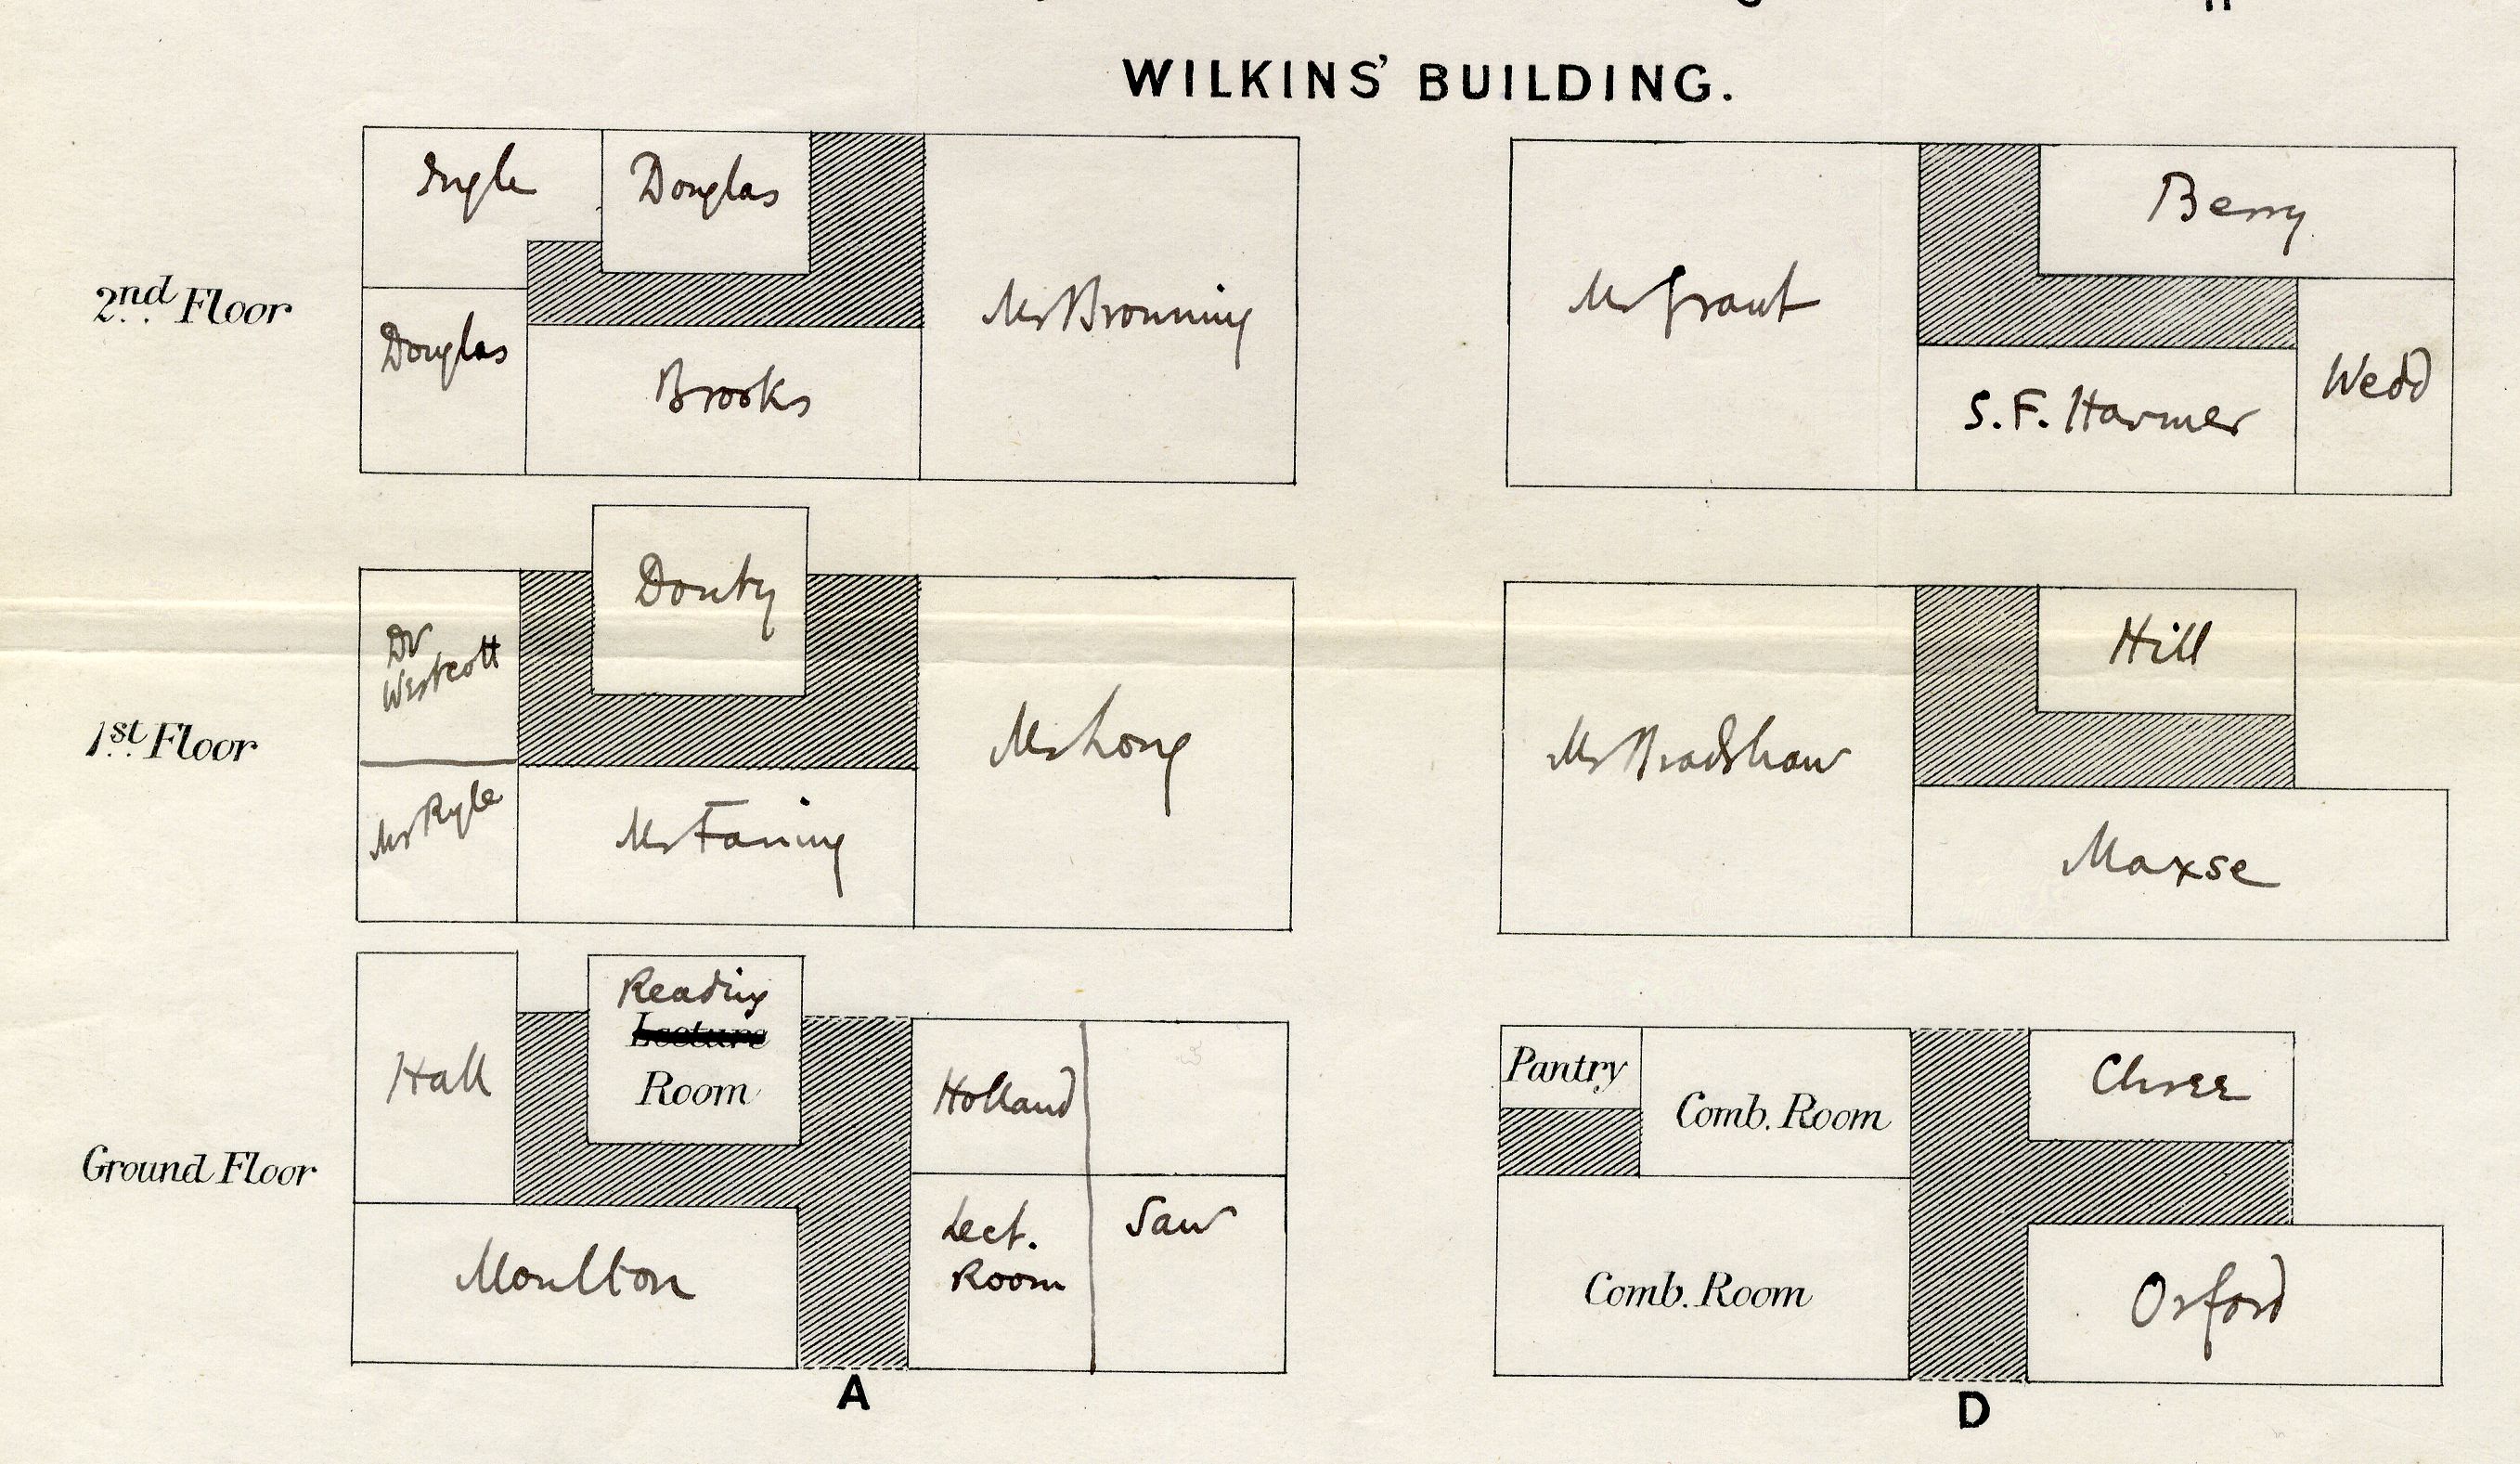 WILKINS' BUILDING.
2nd Floor
Ingle
Douglas
Douglas
Brooks
Mr Browning
Mr Grant
Berry
S.F. Harmer
Wedd
1st Floor
Dr
Westcott
Douty
Mr Ryle
Mr Long
Mr Bradshaw
Hill
Maxse
Ground Floor
Hall
Reading
Lecture
Room
Moulton
Holland
Lect.
Room
Saw
A
Pantry
Comb. Room
Comb. Room
Chree
Orford
D